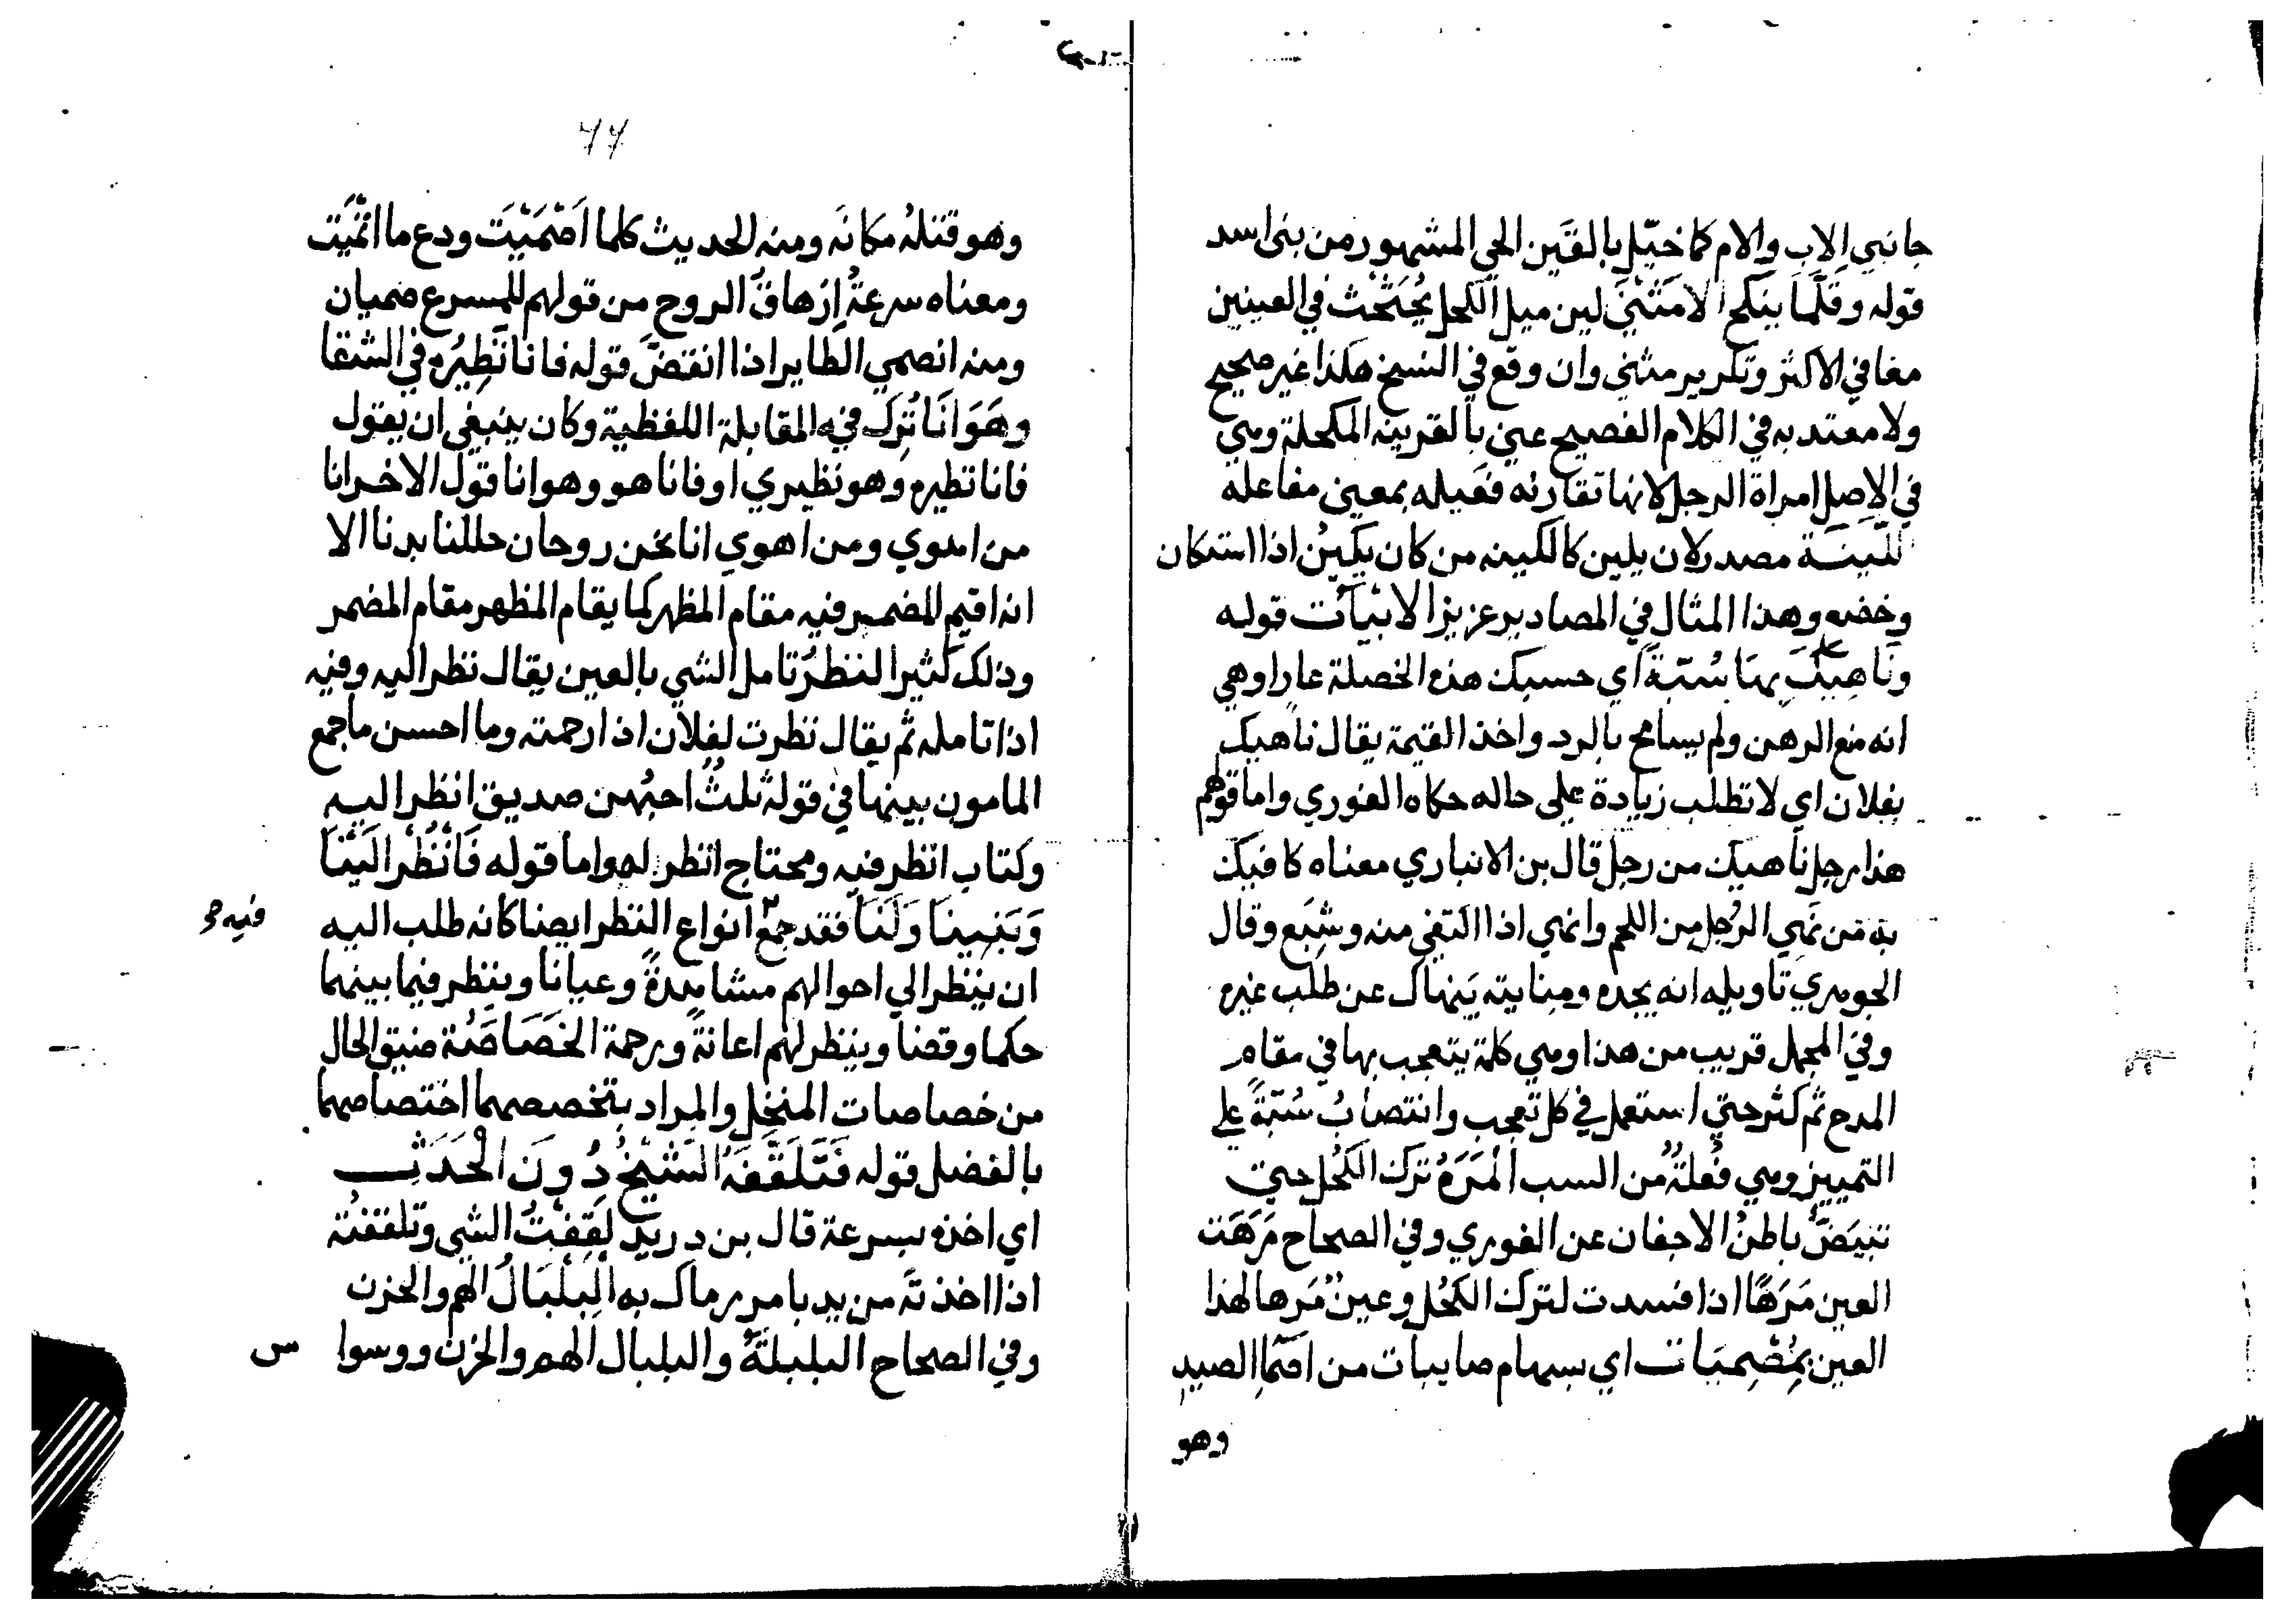 جانبي الاب والام كما خيّل بالقَين الحي المشهور من بنى اسد
قوله وقلّمَا ينكح الا مَثْنَى لين ميل الكحل يُجْتَحَث في العينين
معا في الاكثر وتكرير مثني وان وقع في النسخ هكذا غير صحيح
ولا معتد به في الكلام الفصيح عني بالقرينه المكحلة وهي
في الاصل امراة الرجل لانها تقارنه فعيله بمعني مفاعله
اللّينــة مصدر لان يلين كالكينه من كان يكينُ اذا استكان
وخضع وهذا المثال في المصادير عزيز الابْيَات قوله
ونَاهِيْكَ بِهَا سُبّةً اي حسبك هذه الخصلة عارا وهي
انه منع الرهن ولم يسامح بالرد واخذ القيمة يقال ناهيك
بفلان اي لا تطلب زيادة على حاله حكاه الغوري واما قولهم
هذا رجل ناهيك من رجل قال بن الانباري معناه كافيك
به من نَهي الرجُل من اللحم وانهي اذا اكتفي منه وشَبَع وقال
الجوهري تاويله انه بجده وعنايته يَنهاك عن طلب غيره
وفي المجمل قريب من هذا وهي كلمة يتعجب بها في مقام
المدح ثم كثر حتي استعمل في كل تعجب وانتصابُ سُبّةً على
التمييز وهي فُعلةٌ من السب المَرَهُ ترك الكُحل حتي
تبيَضَّ باطنُ الاجفان عن الغوري وفي الصحاح مَرَهَت
العين مَرَهًا اذا فسدت لترك الكُحل وعينٌ مَرها لهذا
العين بِمُصْمِيَات اي بسهام صايبات من اصمَا الصيد
وهو
٦٦
وهو قتلهُ مكانَه ومنه الحديث كلما اَصْمَيْتَ ودع ما انْمَيْت
ومعناه سرعةُ اِزهاقُ الروح من قولهم للمسرع صميان
ومنه انصمي الطاير اذا انقضّ قوله فانا نَظِيْرُه في الشقا
وهَوَ انَا تُرِك فيه المقابلة اللفظية وكان ينبغي ان يقول
فانا نظيره وهو نظيري او فانا هو وهو انا قول الاخر انا
من اهوي ومن اهوي انا نحن روحان حللنا بدنا الا
انه اقيم المضمر فيه مقام المظهر كما يقام المظهر مقام المضمر
وذلك كثير النظرُ تامل الشي بالعين يقال نظر اليه وفيه
اذا تامله ثم يقال نظرت لفلان اذا رحمته وما احسن ما جمع
المامون بينها في قوله ثلثٌ احبُهن صديق انظر اليه
وكتاب انظر فيه ومحتاج انظر له واما قوله فَانْظُرْ اليْنَا
وَبَيْنَنا وَلَنَا فقد جمعَ انواع النظر ايضا كانه طلب اليه
فيه
ان ينظر الي احوالهم مشاهدةً وعيانا وينظر فيما بينهما
حكما وقضا وينظر لهم اعانةً ورحمة الخَصَاصَة ضيق الحال
من خصاصات المنخل والمراد بتخصصهما اختصاصهما
بالفضل قوله فَتَلَقَّفَهُ الشَّيْخُ دُونَ الْحَدَثِ
اي اخذه بسرعة قال بن دريد لَقِفْتُ الشي وتلقفتُه
اذا اخذتَه من يد بامر رماك به البلْبَالُ الهم والحزن
وفي الصحاح البلبلةُ والبلبال الهم والحزن ووسوا س